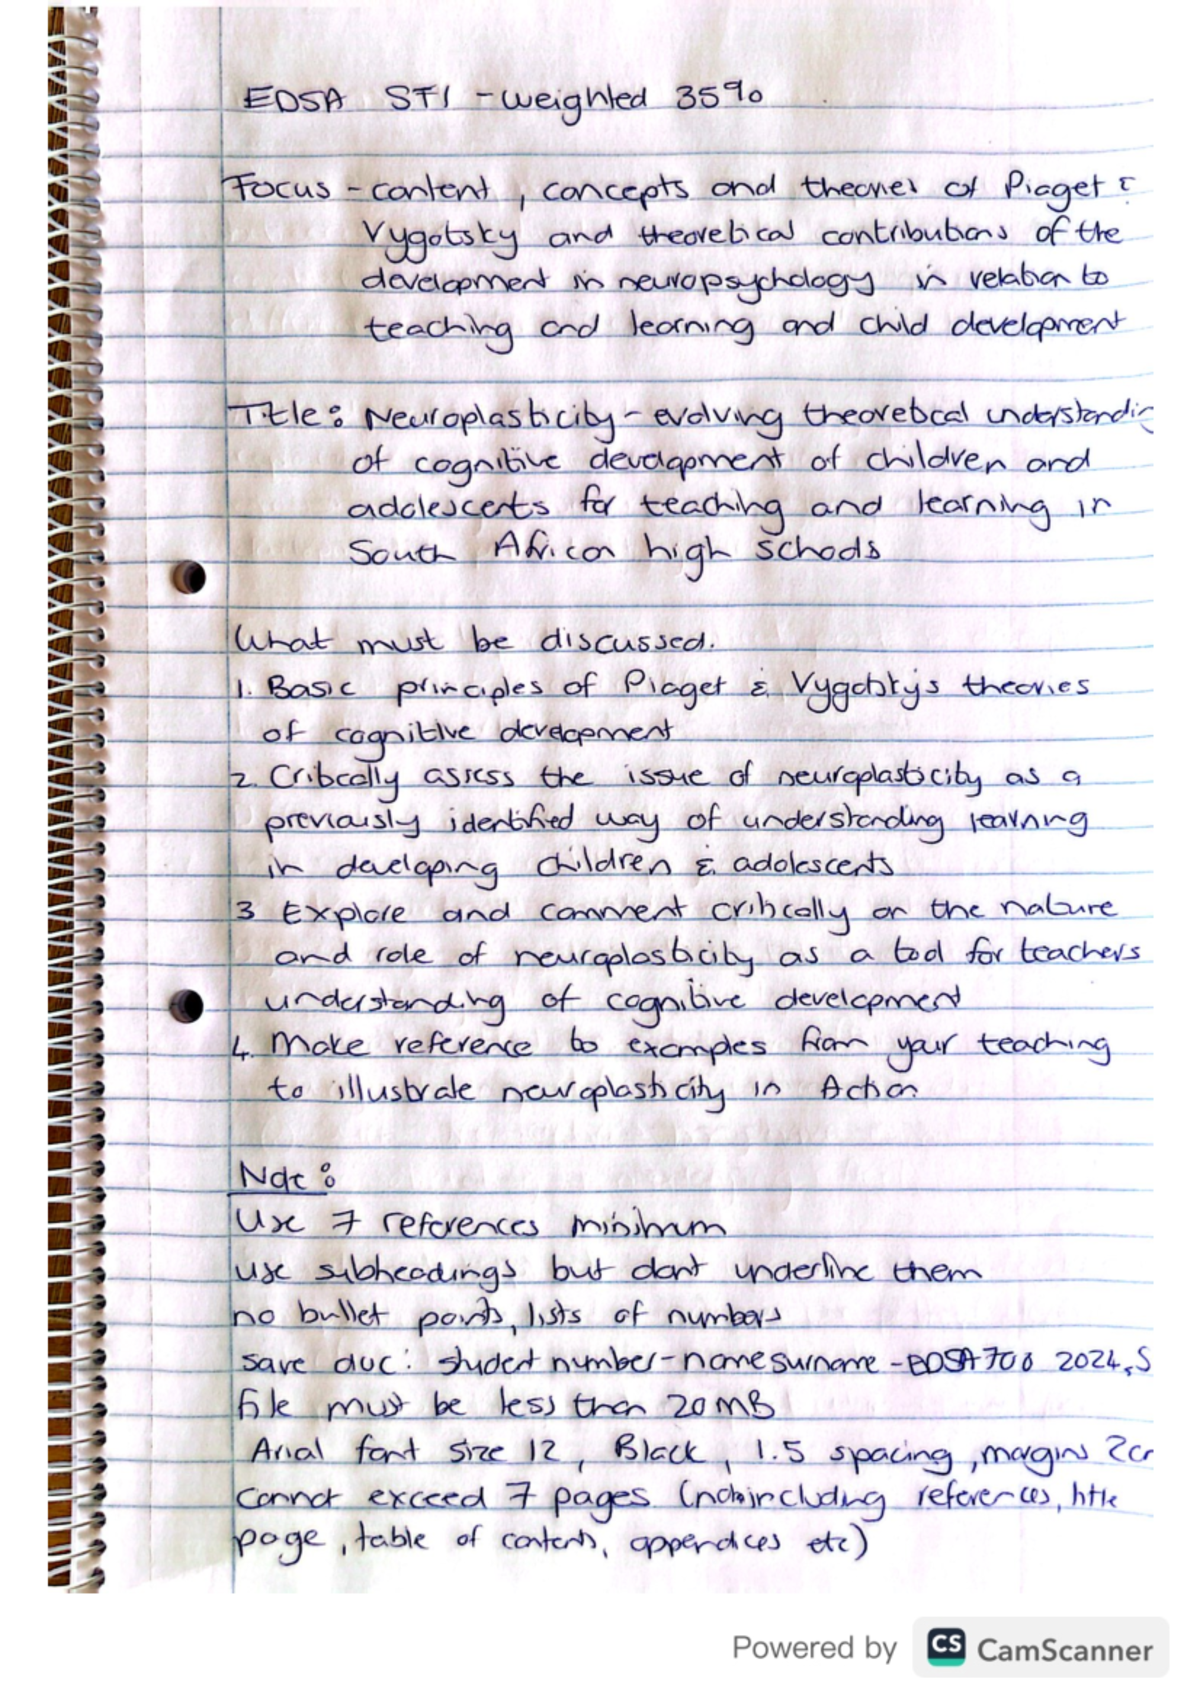 EDSA ST1 - weighted 35%
Focus - content, concepts and theories of Piaget &
Vygotsky and theoretical contributions of the
development in neuropsychology in relation to
teaching and learning and child development
Title: Neuroplasticity - evolving theoretical understandin
of cognitive development of children and
adolescents for teaching and learning in
South African high schools
What must be discussed.
1. Basic principles of Piaget & Vygotsky's theories
of cognitive development
2. Critically assess the issue of neuroplasticity as a
previously identified way of understanding learning
in developing children & adolescents
3 Explore and comment critically on the nature
and role of neuroplasticity as a tool for teachers
understanding of cognitive development
4. Make reference to examples from your teaching
to illustrate neuroplasticity in Action
Note:
Use 7 references minimum
use subheadings but dont underline them
no bullet points, lists of numbers
save duc: student number-namesurname - EDSA700 2024, S
file must be less than 20MB
Arial font size 12, Black, 1.5 spacing, margins 2cm
Cannot exceed 7 pages (not including references, title
page, table of contents, appendices etc)
Powered by CS CamScanner